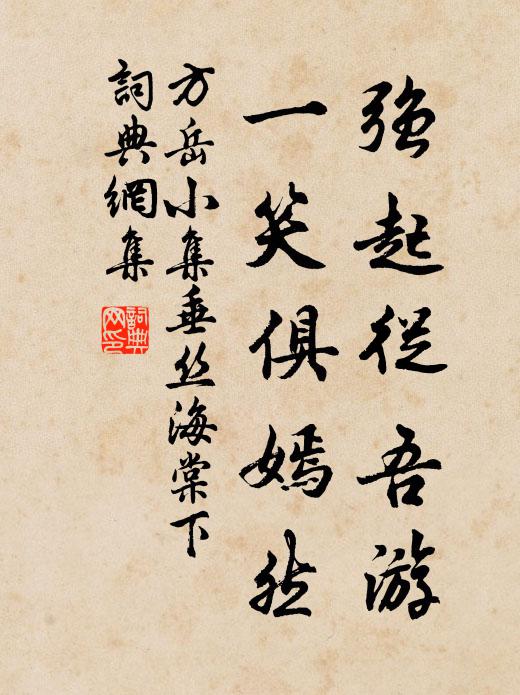 強起從吾游
一笑俱嫣然
方岳小集垂丝海棠下
詞典網集
詞典
网印